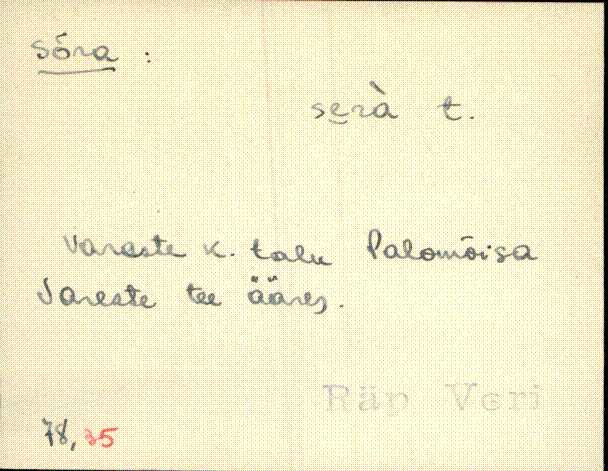 sõra :
se̮rà t.
Vareste k. talu Palomõisa
Vareste tee ääres.
Räp Veri
78, 35